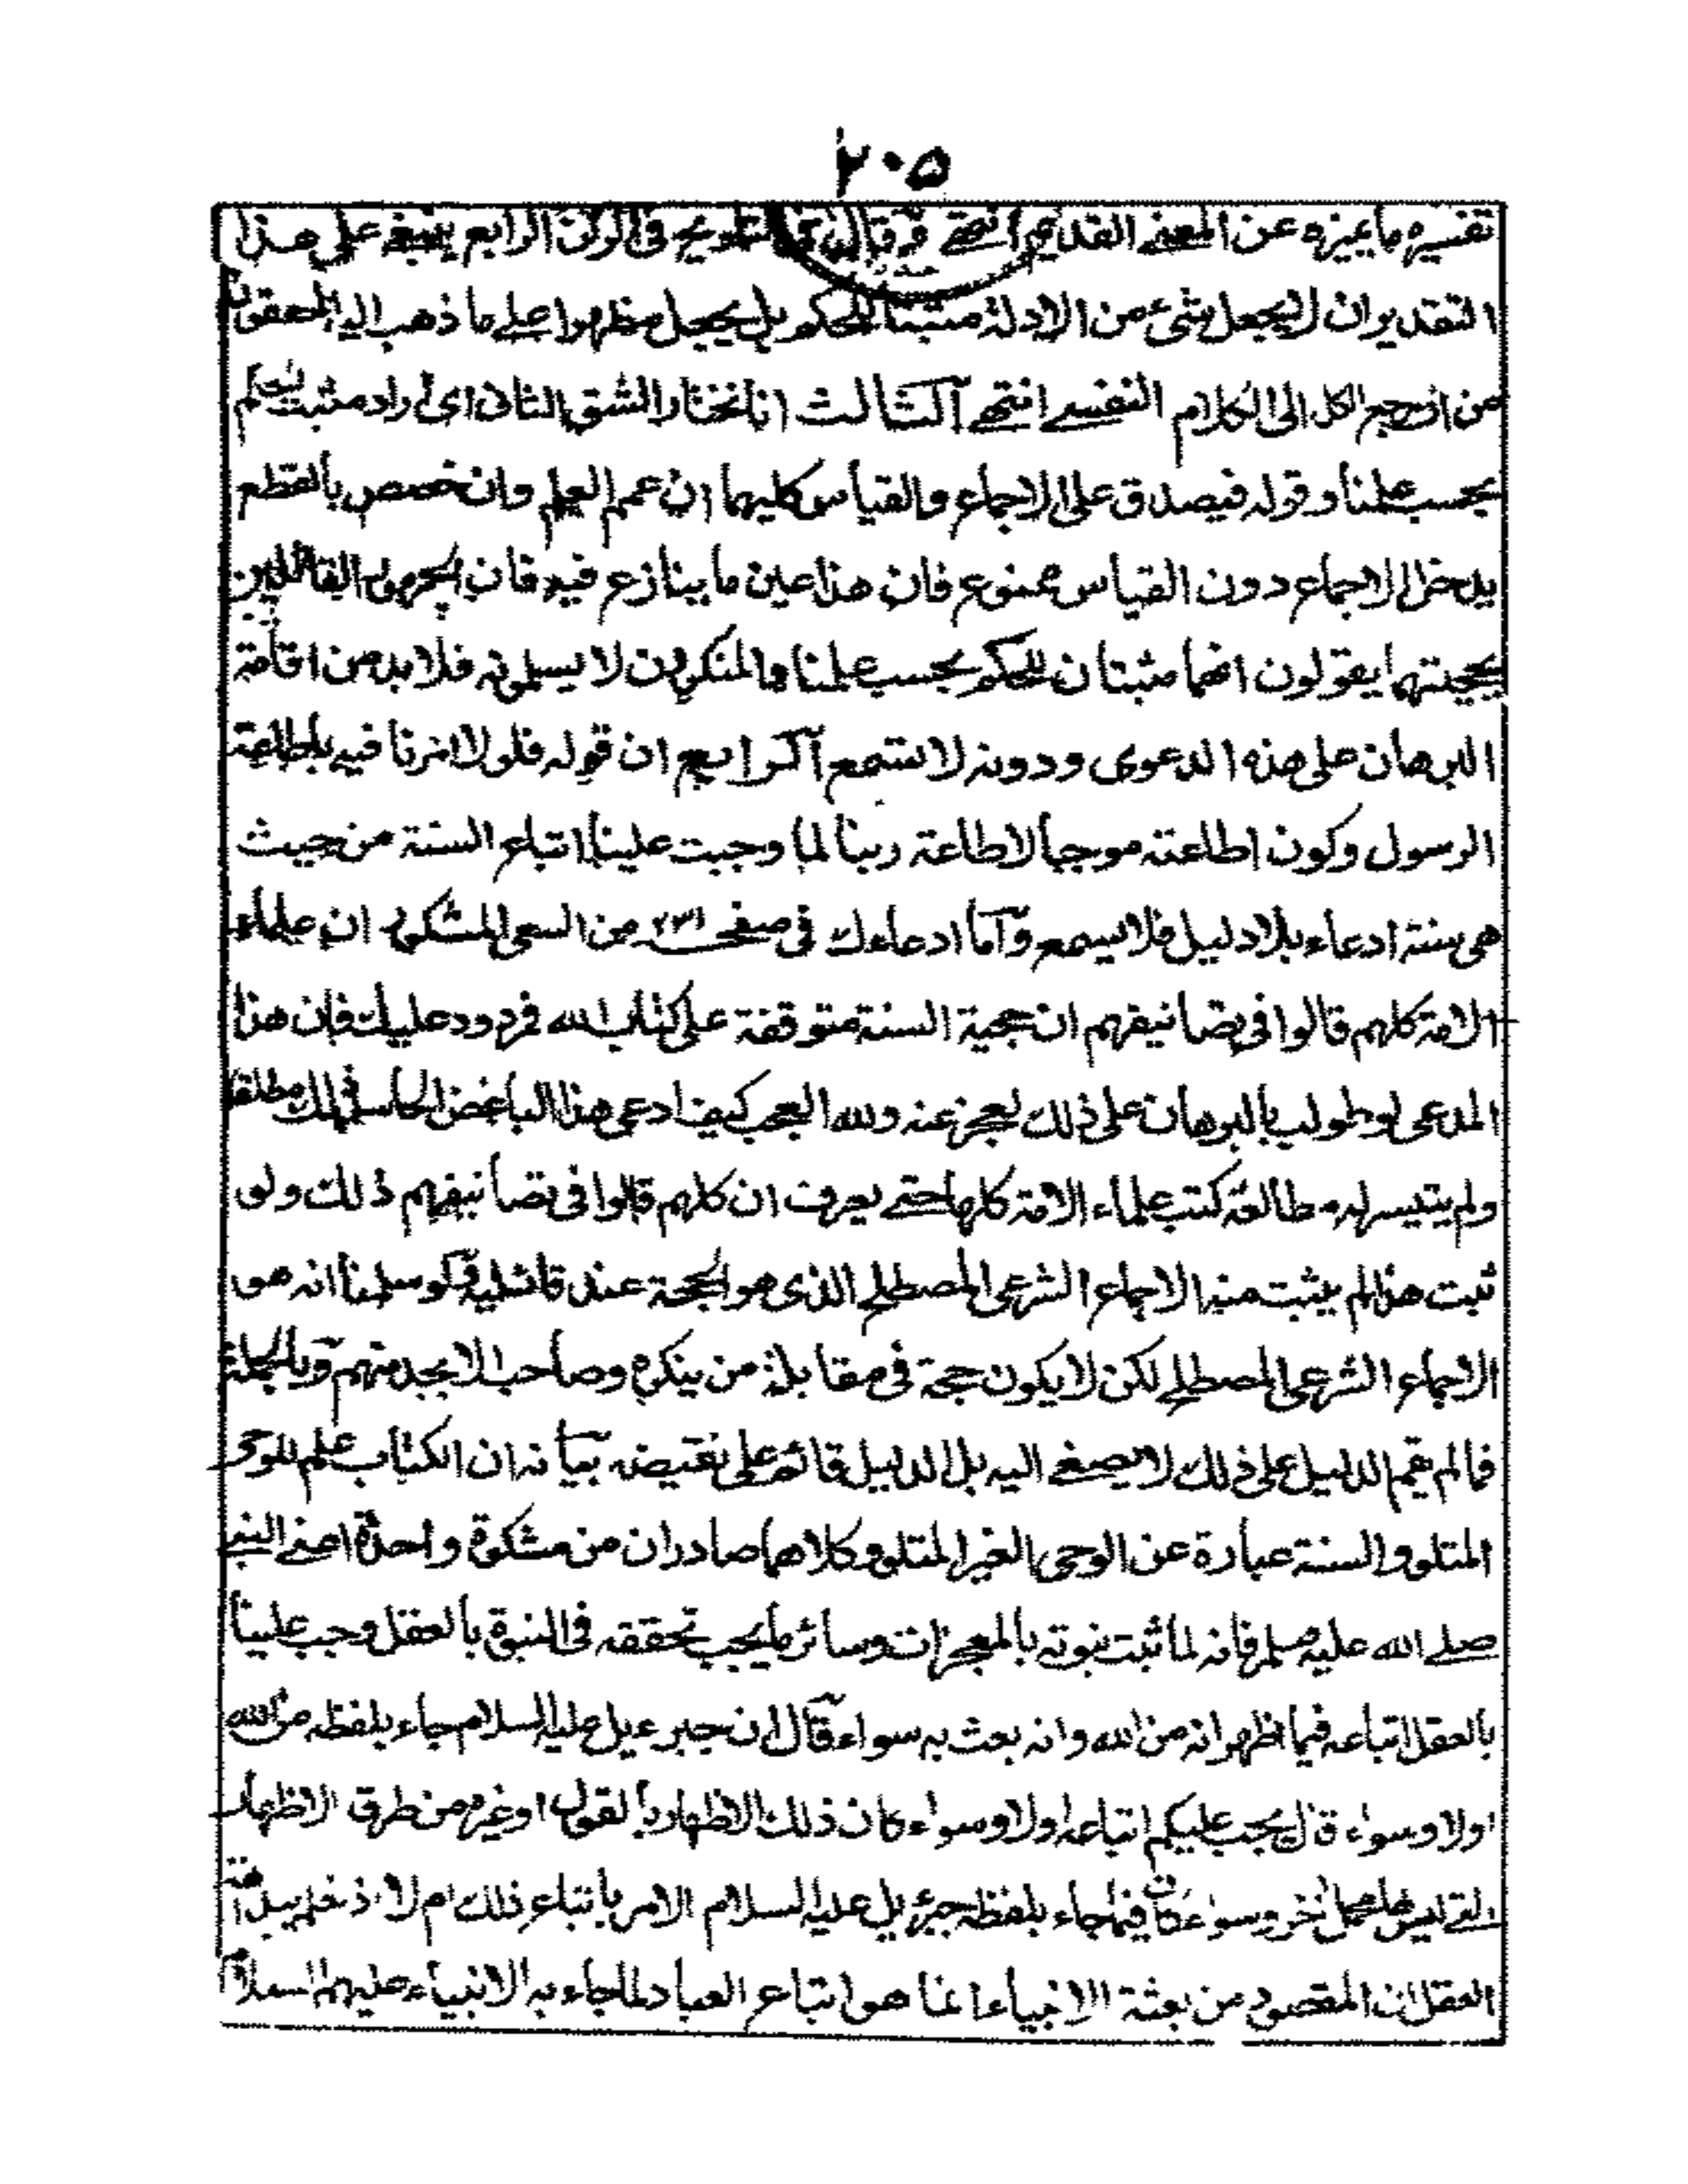 ٢٠٥
تفسيره ما يميزه عن المعنى القديم انتهى وقال في التلويح في الركن الرابع ينبغي على هذا
التقدير ان لا يجعل شيء من الادلة مثبتا للحكم بل يجعل مظهرا على ما ذهب اليه المحققون
من ان رجع الكل الى الكلام النفسي انتهى الثالث انا نختار الشق الثاني اي اراد مثبت لحكم
بحسب علمنا وقوله فيصدق على الاجماع والقياس كليهما ان عمم العلم وان خصص بالقطع
يدخل الاجماع دون القياس ممنوع فان هذا عين ما ينازع فيه فان الجمهور القائلين
بحجيتهما يقولون انهما مثبتان للحكم بحسب علمنا والمنكرون لا يسلمونه فلا بد من اقامة
البرهان على هذه الدعوى ودونه لا تسمع الرابع ان قوله فلولا امرنا فيه باطاعة
الرسول وكون اطاعته موجبا لاطاعة ربنا لما وجبت علينا اتباع السنة من حيث
هي سنة ادعاء بلا دليل فلا يسمع واما ادعاءك في صفحـ من السعي المشكور ان علماء
الامة كلهم قالوا في تصانيفهم ان حجية السنة متوقفة على كتاب الله فمردود عليك فان هذا
المدعى لو طولب بالبرهان على ذلك لعجز عنه ولله العجب كيف ادعى هذا الباغض الحاسد ذلك مطلقا
ولم يتيسر له مطالعة كتب علماء الامة كلها حتى يعرف ان كلهم قالوا في تصانيفهم ذلك ولو
ثبت هذا لم يثبت منه الاجماع الشرعي المصطلح الذي هو الحجة عند قائليه ولو سلمنا انه هو
الاجماع الشرعي المصطلح لكن لا يكون حجة في مقابلة من ينكره وصاحب لا بجد منهم وبالجملة
فما لم يقم الدليل على ذلك لا يصغى اليه بل الدليل قائم على نقيضه بيانه ان الكتاب علم للوحي
المتلو والسنة عبارة عن الوحي الغير المتلو وكلاهما صادران من مشكوة واحدة اعني النبي
صلى الله عليه وسلم فانه لما ثبت نبوته بالمعجزات وسائر ما يجب تحققه في النبوة بالعقل وجب علينا
بالعقل اتباعه فيما اظهر انه من الله وانه بعث به سواء قال ان جبرءيل عليه السلام جاء بلفظه من الله
اولا وسواء قال يجب عليكم اتباعه اولا وسواء كان ذلك الاظهار بالقول او غيره من طرق الاظهار
التي ليس هذا محل ذكر وسواء كان فيما جاء بلفظه جبرئيل عليه السلام الامر باتباع ذلك ام لا اذ نعلم ببداهة
العقل ان المقصود من بعثة الانبياء انما هو اتباع العباد لما جاء به الانبياء عليهم السلام